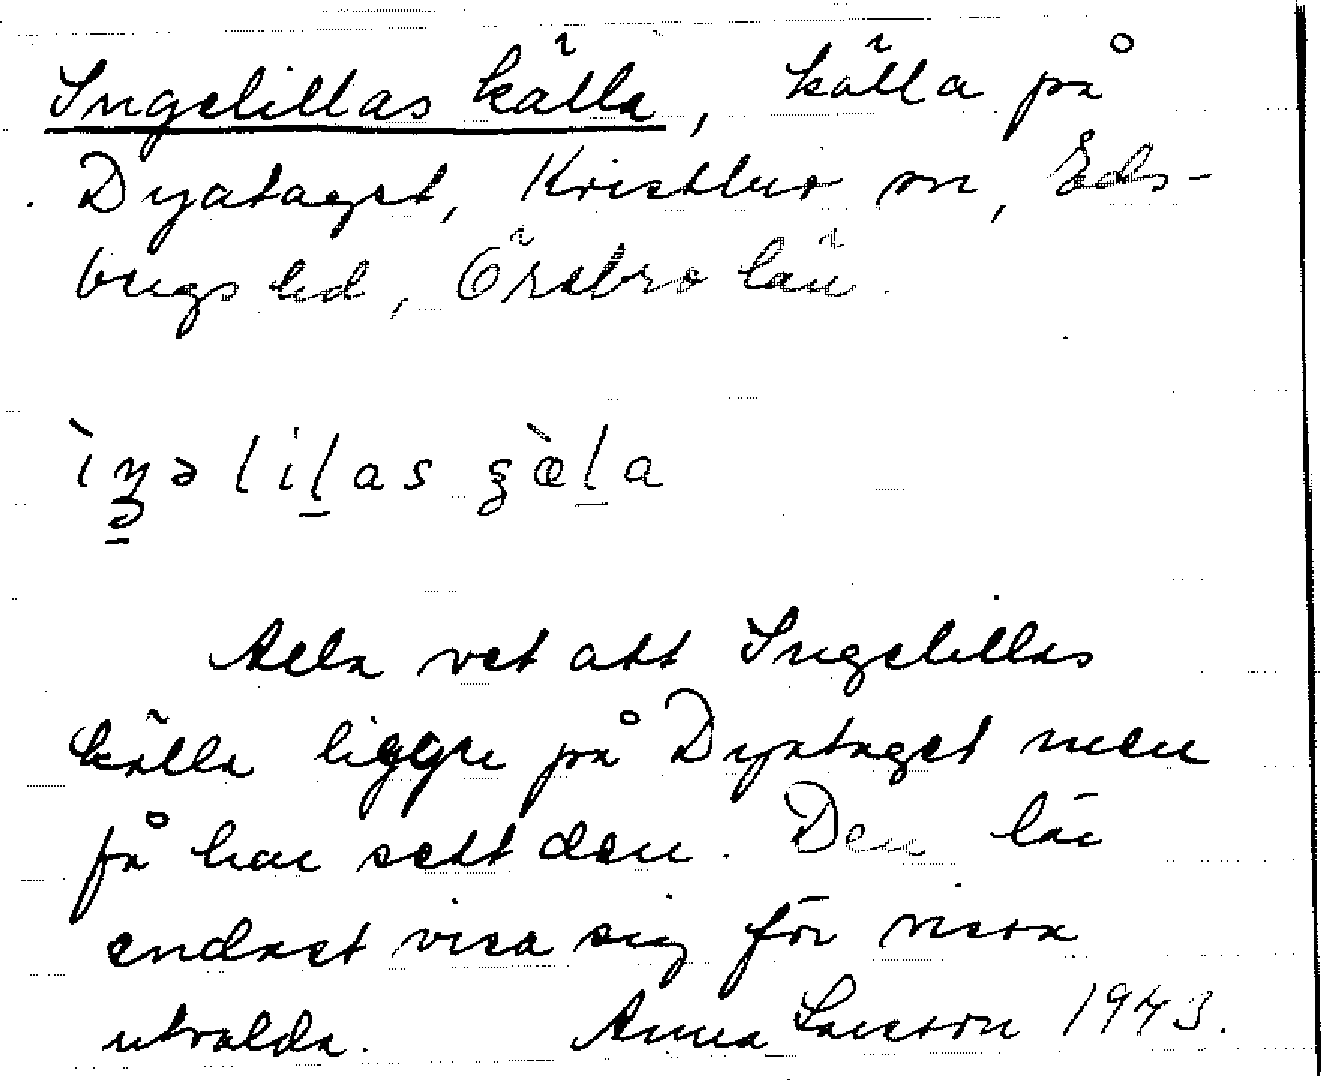 Ingelillas källa, källa på
Dyataget, Knistbur sn, Eds-
bergs hd, Örebro län.
ìŋəlilas ʒæ̀la
Alla vet att Ingelillas
källa ligger på Dyataget men
få har sett den. Den lär
endast visa sig för vissa
utvalda. Anna Larsson 1943.